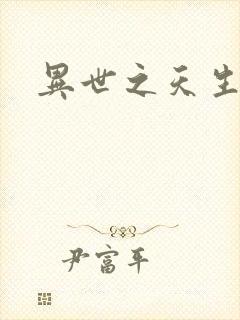 異世之天生
尹富平